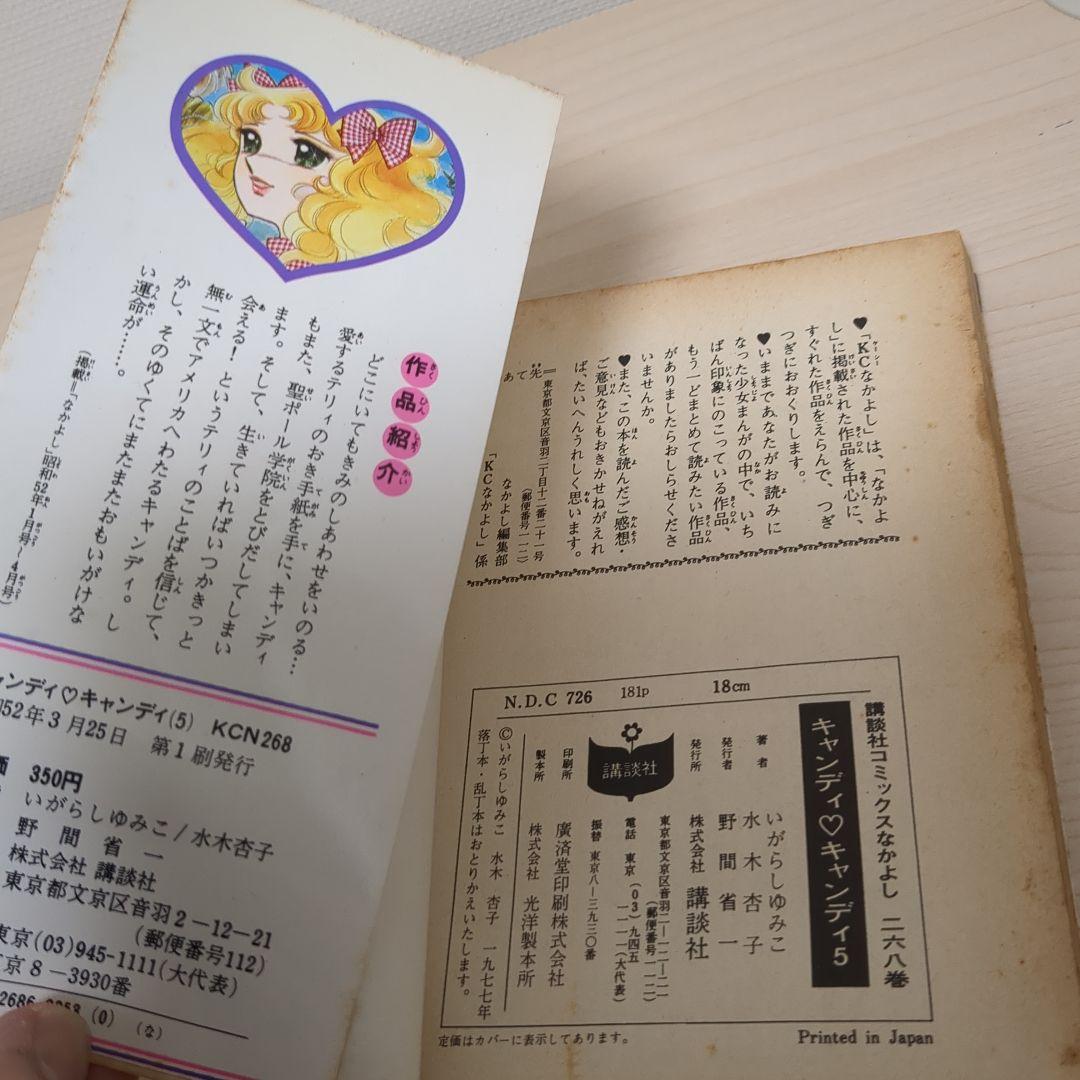 作品紹介
どこにいてもきみのしあわせをいのる…
愛するテリィのおき手紙を手に、キャンディ
もまた、聖ポール学院をとびだしてしまい
ます。そして、生きていればいつかきっと
会える！というテリィのことばを信じて、
無一文でアメリカへわたるキャンディ。し
かし、そのゆくてにまたまたおもいがけな
い運命が……。
(掲載＝「なかよし」昭和52年1月号～4月号)
ンディ♡キャンディ(5) KCN268
52年3月25日 第1刷発行
350円
いがらしゆみこ/水木杏子
野間省一
株式会社 講談社
東京都文京区音羽2-12-21
(郵便番号112)
東京(03)945-1111(大代表)
京8-3930番
(0) (な)
♥「KCなかよし」は、「なかよ
し」に掲載された作品を中心に、
すぐれた作品をえらんで、つぎ
つぎにおおくりします。
♥いままであなたがお読みに
なった少女まんがの中で、いち
ばん印象にのこっている作品、
もう一どまとめて読みたい作品
がありましたらおしらせくださ
いませんか。
♥また、この本を読んだご感想・
ご意見などもおきかせねがえれ
ば、たいへんうれしく思います。
あて先＝東京都文京区音羽二丁目十二番二十一号
(郵便番号一一二)
なかよし編集部
「KCなかよし」係
N.D.C 726 181p 18cm
講談社コミックスなかよし 二六八巻
キャンディ♡キャンディ5
著者 いがらしゆみこ
水木杏子
発行者 野間省一
発行所 株式会社 講談社
東京都文京区音羽二―一二―二一
(郵便番号一一二)
電話 東京(03)九四五
一一一一(大代表)
振替 東京八―三九三〇番
講談社
印刷所 廣済堂印刷株式会社
製本所 株式会社 光洋製本所
©いがらしゆみこ 水木杏子 一九七七年
落丁本・乱丁本はおとりかえいたします。
定価はカバーに表示してあります。
Printed in Japan